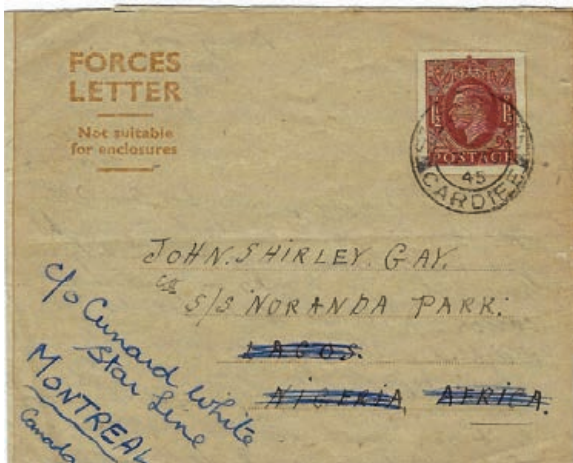 FORCES
LETTER
Not suitable
for enclosures
POSTAGE
45
CARDIFF
JOHN. SHIRLEY. GAY.
S/S NORANDA PARK.
LAGOS.
NIGERIA, AFRICA.
c/o Cunard White
Star Line
MONTREAL
Canada